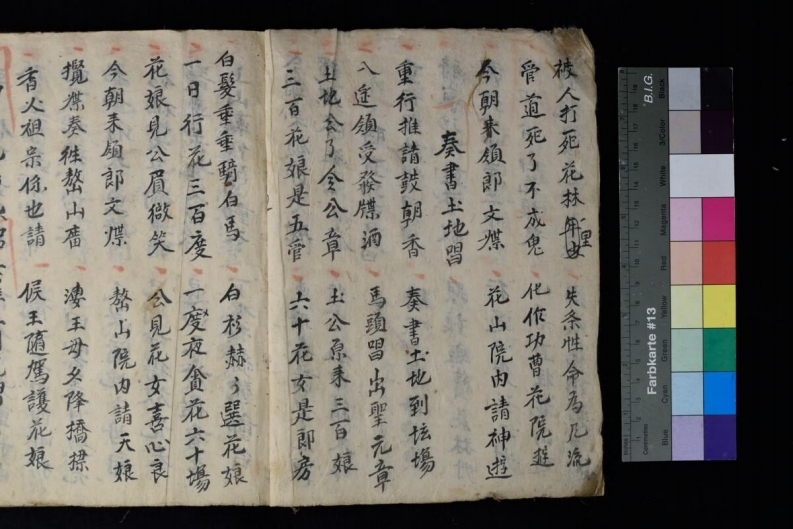 被人打死花林里 失条性命為凡流
管道死了不成鬼 化作功曹花院遊
今朝来領郎文牒 花山院内請神遊
奏書土地唱
重行推請鼓朝香 奏書土地到坛場
八途領受發牒酒 馬頭唱出聖元章
土地公了令公章 土公原来三百娘
三百花娘是五管 六十花女是郎房
白髮垂垂騎白馬 白衫赫々選花娘
一日行花三百度 一度夜貪花六十場
花娘見公眉微笑 公見花女喜心良
今朝来領郎文牒 鰲山院内請天娘
攪牒奏徃鰲山廟 淒王母女降橋
香火祖宗你也請 候王隨駕護花娘
Farbkarte #13
B.I.G.
Blue
Cyan
Green
Yellow
Red
Magenta
White
3/Color
Black
Centimetres